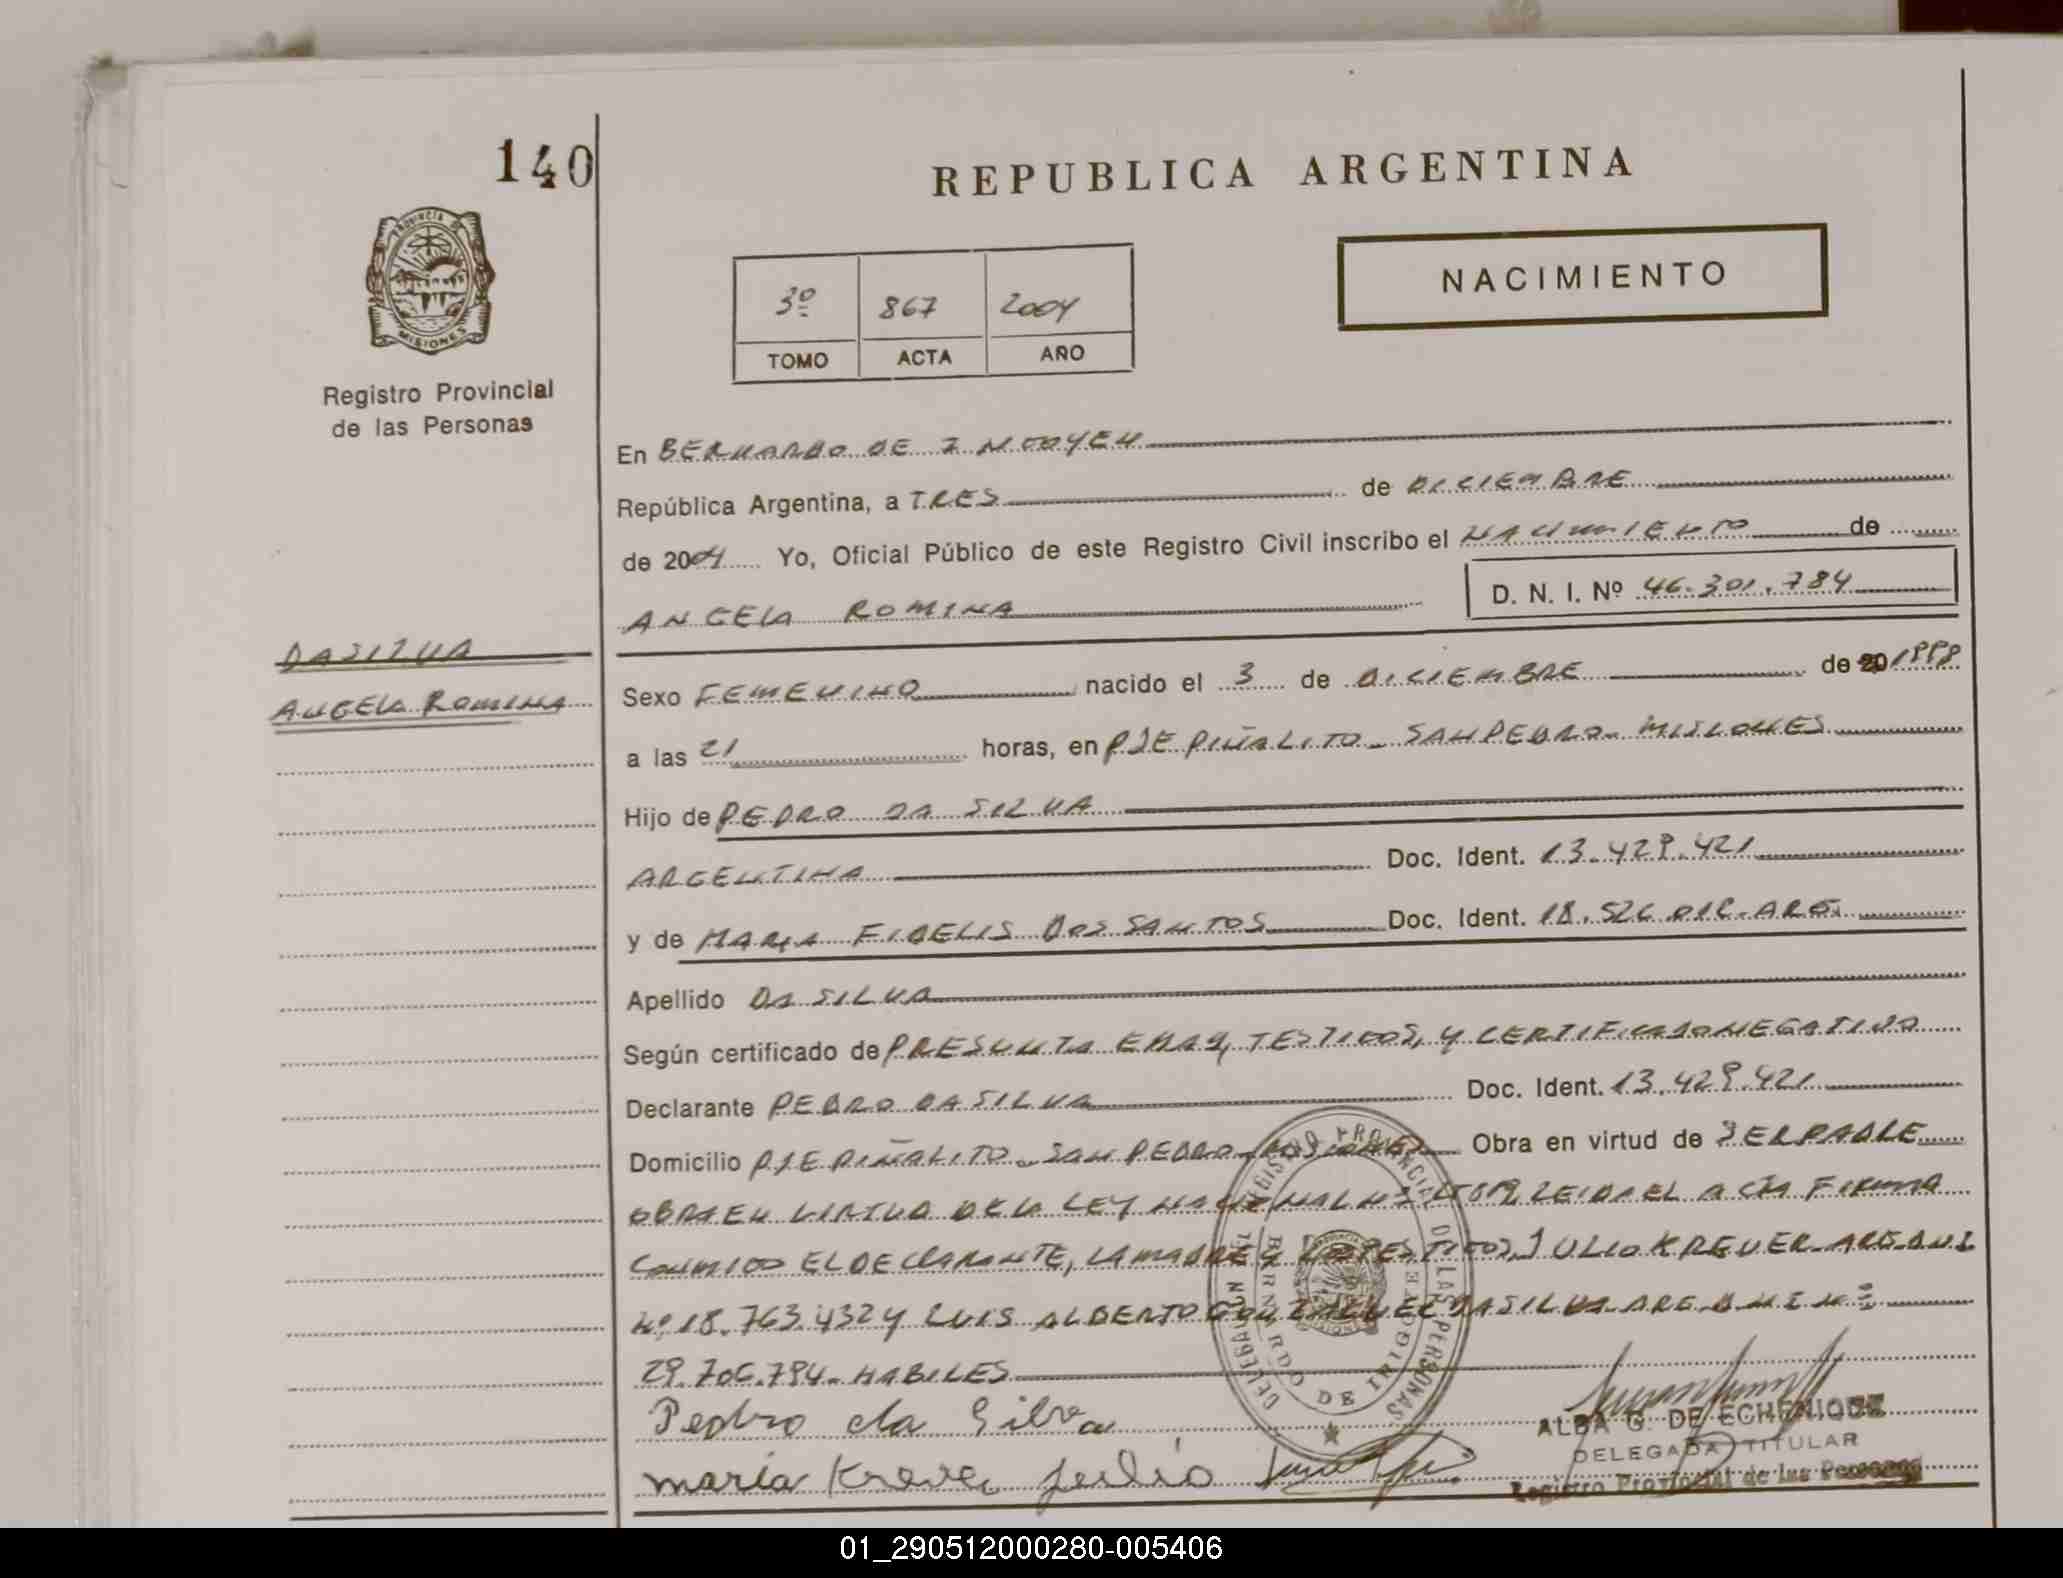 140
REPUBLICA ARGENTINA
NACIMIENTO
3º 867 2004
TOMO ACTA AÑO
PROVINCIA DE
MISIONES
Registro Provincial
de las Personas
En BERNARDO DE IRIGOYEN
República Argentina, a TRES de DICIEMBRE
de 2004 Yo, Oficial Público de este Registro Civil inscribo el NACIMIENTO de
ANGELA ROMINA D. N. I. Nº 46.301.784
DA SILVA
ANGELA ROMINA
Sexo FEMENINO nacido el 3 de DICIEMBRE de 20 1998
a las 21 horas, en PJE PIÑALITO - SAN PEDRO - MISIONES
Hijo de PEDRO DA SILVA
ARGENTINA Doc. Ident. 13.429.421
y de MARIA FIDELIS DOS SANTOS Doc. Ident. 18.526.018-ARG.
Apellido DA SILVA
Según certificado de PRESUNTA EDAD, TESTIGOS, Y CERTIFICADO NEGATIVO
Declarante PEDRO DA SILVA Doc. Ident. 13.429.421
Domicilio PJE PIÑALITO - SAN PEDRO - MISIONES Obra en virtud de SER PADRE
OBRA EN VIRTUD DE LA LEY NACIONAL Nº LEIDA EL ACTA FIRMA
CONMIGO EL DECLARANTE, LA MADRE Y LOS TESTIGOS, JULIO KREVER-ARG-D.N.I.
Nº 18.763.432 Y LUIS ALBERTO GONZALVEZ DA SILVA-ARG-D.N.I. Nº
29.706.794-HABILES
Pedro da Silva
maria Krever julio
DELEGACION REGISTRO PROVINCIAL DE LAS PERSONAS
BERNARDO DE IRIGOYEN
ALBA G. DE ECHENIQUE
DELEGADA TITULAR
Registro Provincial de las Personas
01_290512000280-005406